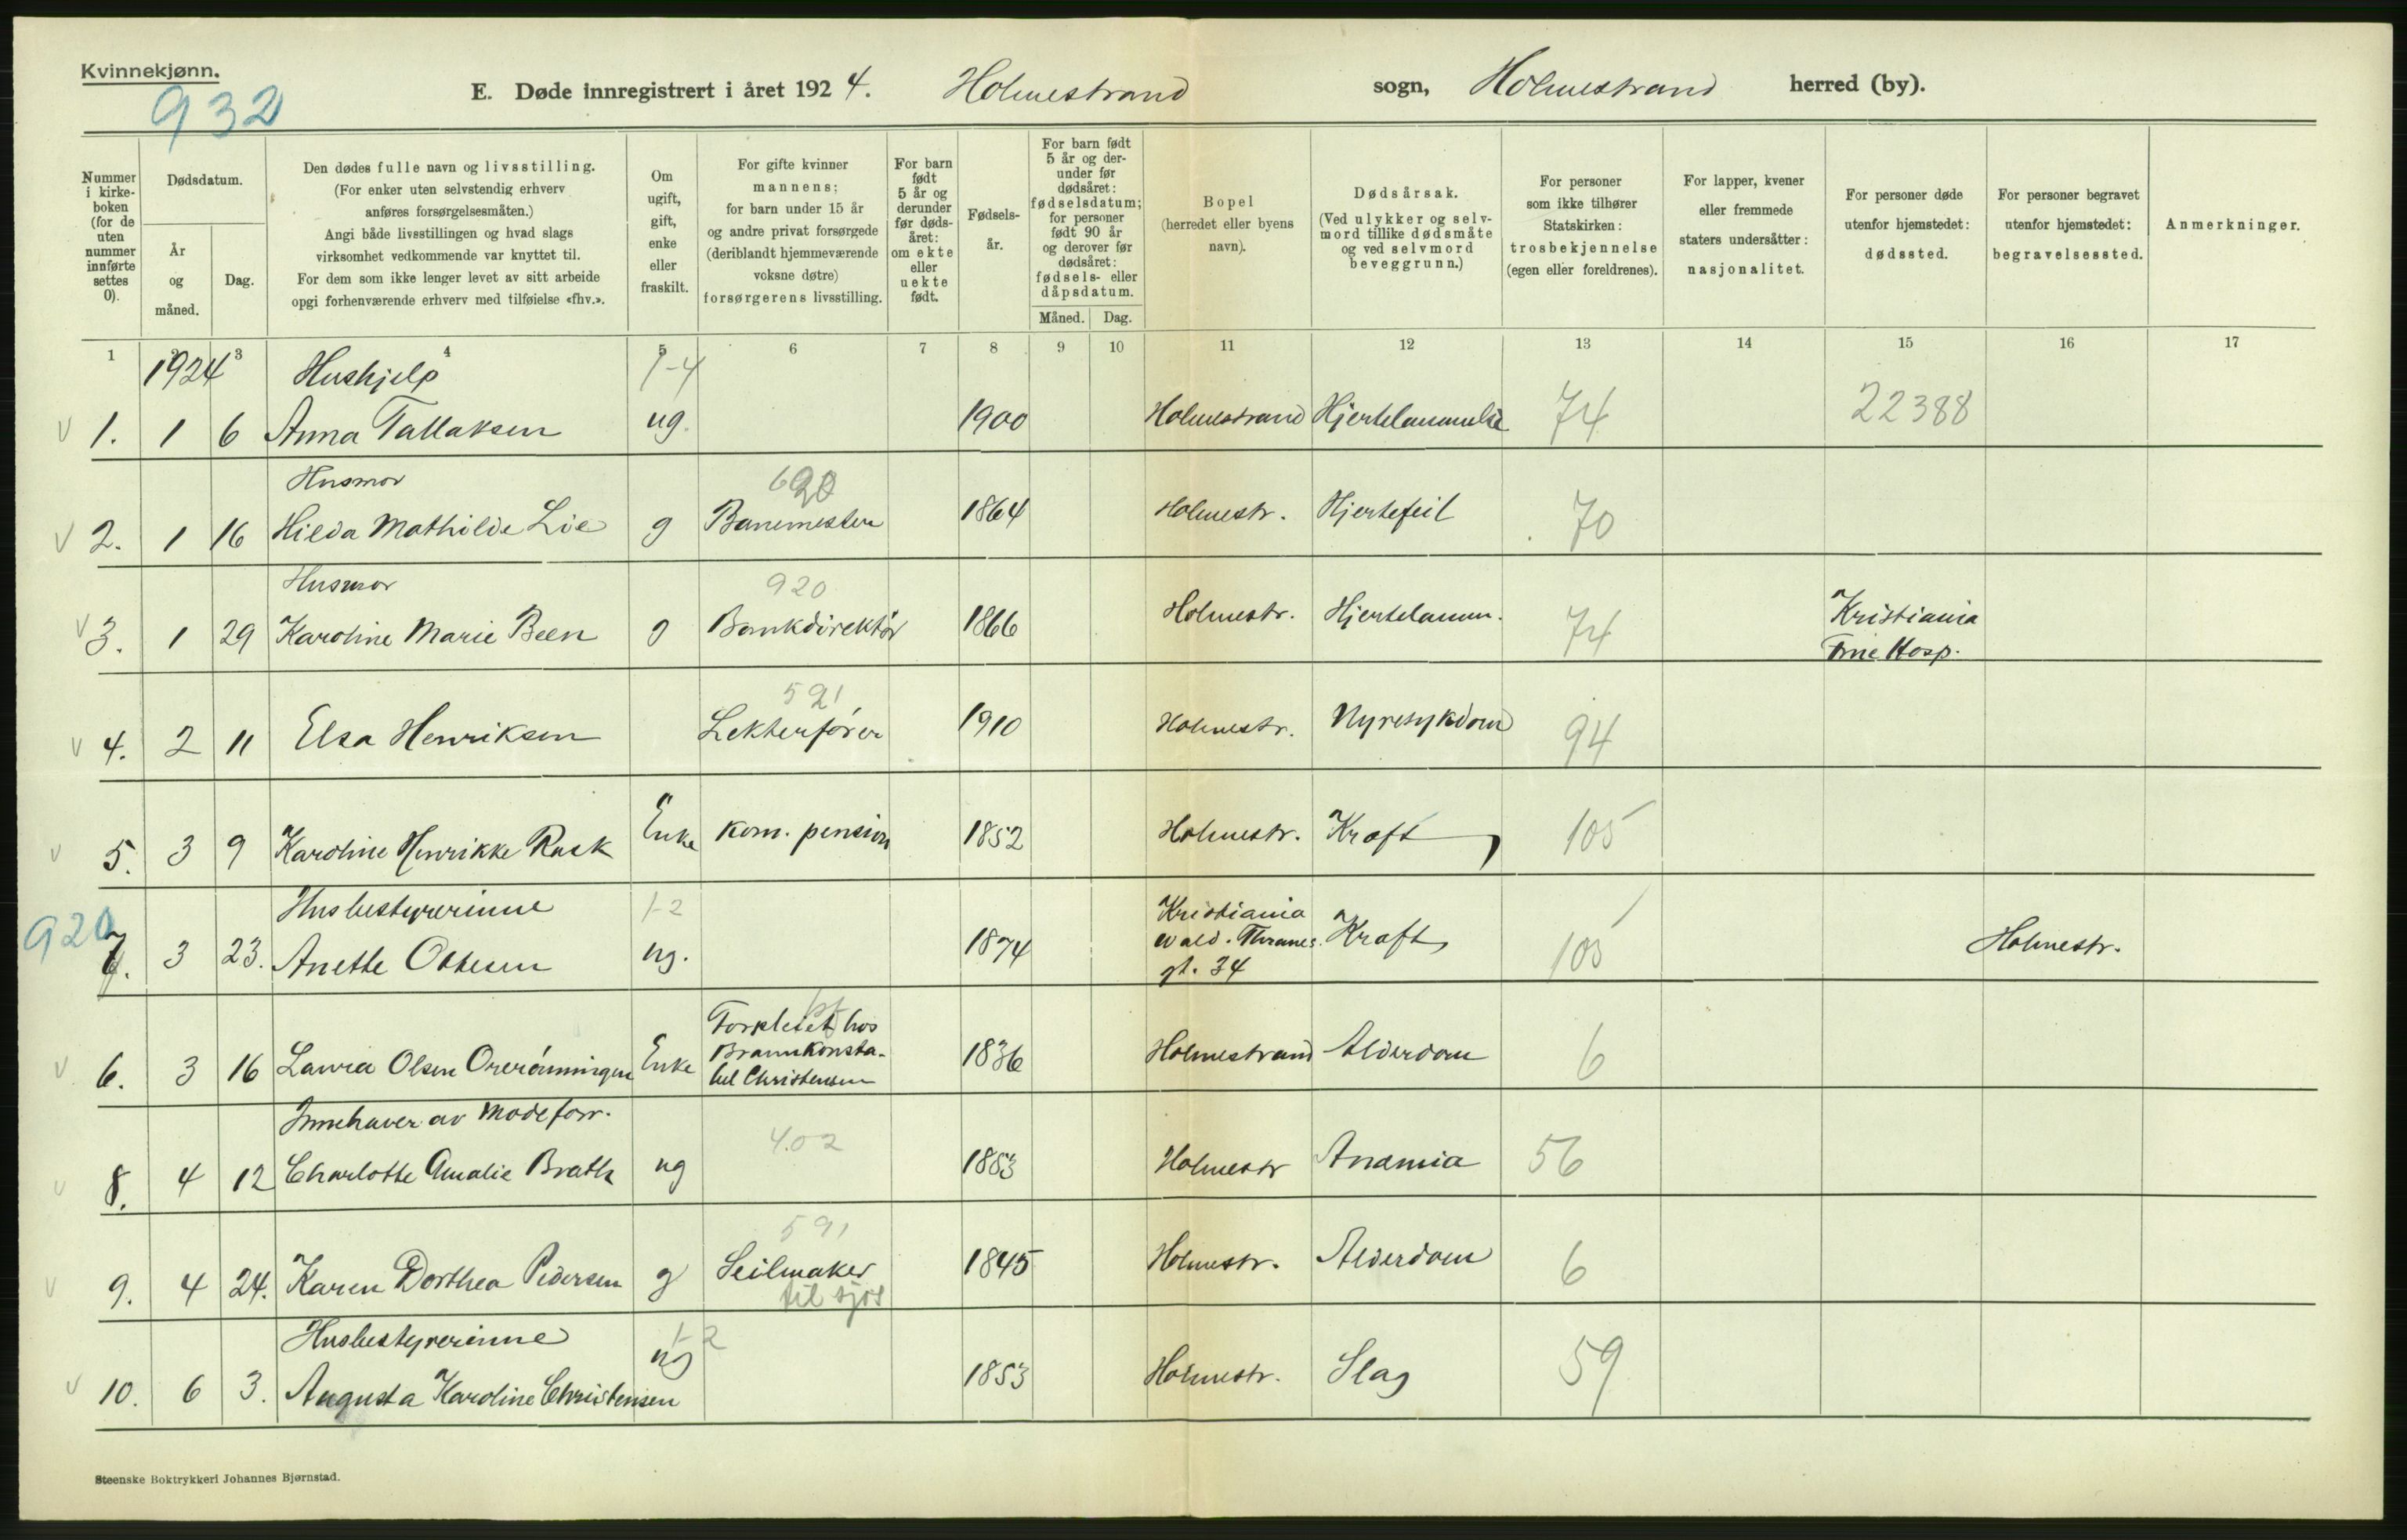 Kvinnekjønn.
932
E. Døde innregistrert i året 1924. Holmestrand sogn, Holmestrand herred (by).
Nummer i kirkeboken (for de uten nummer innførte settes 0).
Dødsdatum.
År og måned.
Dag.
Den dødes fulle navn og livsstilling.
(For enker uten selvstendig erhverv
anføres forsørgelsesmåten.)
Angi både livsstillingen og hvad slags
virksomhet vedkommende var knyttet til.
For dem som ikke lenger levet av sitt arbeide
opgi forhenværende erhverv med tilføielse «fhv.».
Om ugift, gift, enke eller fraskilt.
For gifte kvinner
mannens;
for barn under 15 år
og andre privat forsørgede
(deriblandt hjemmeværende
voksne døtre)
forsørgerens livsstilling.
For barn født 5 år og derunder før dødsåret: om ekte eller uekte født.
Fødselsår.
For barn født 5 år og derunder før dødsåret: fødselsdatum; for personer født 90 år og derover før dødsåret: fødsels- eller dåpsdatum.
Måned. Dag.
Bopel
(herredet eller byens
navn).
Dødsårsak.
(Ved ulykker og selvmord tillike dødsmåte og ved selvmord beveggrunn.)
For personer
som ikke tilhører
Statskirken:
trosbekjennelse
(egen eller foreldrenes).
For lapper, kvener
eller fremmede
staters undersåtter:
nasjonalitet.
For personer døde
utenfor hjemstedet:
dødssted.
For personer begravet
utenfor hjemstedet:
begravelsessted.
Anmerkninger.
1 2 3 4 5 6 7 8 9 10 11 12 13 14 15 16 17
1924 Hushjelp 1-4
v 1. 1 6 Anna Tallaksen ug. 1900 Holmestrand Hjertelammelse 74 22388
Husmor 620
v 2. 1 16 Hilda Mathilde Lie g Banemester 1864 Holmestr. Hjertefeil 70
Husmor 920
v 3. 1 29 Karoline Marie Been g Bankdirektør 1866 Holmestr. Hjertelamm. 74 Kristiania
Frue Hosp.
591
v 4. 2 11 Elsa Henriksen Lekterfører 1910 Holmestr. Nyresykdom 94
v 5. 3 9 Karoline Henrikke Rask Enke Kom. pension 1852 Holmestr. Kræft 105
920 Husbestyrerinne 1-2 Kristiania
7. 3 23. Anette Ottesen ug. 1874 Wald. Thranes Kræft 105 Holmestr.
gt. 34
Forpleiet hos
v 6. 3 16 Laura Olsen Orerønningen Enke Brannkonsta- 1836 Holmestrand Alderdom 6
bel Christensen
Innehaver av Modeforr. 402
v 8. 4 12 Charlotte Amalie Brath ug 1883 Holmestr Anæmia 56
591
v 9. 4 24. Karen Dorthea Pedersen g Seilmaker 1845 Holmestr. Alderdom 6
til sjøs
Husbestyrerinne 1-2
v 10. 6 3. Augusta Karoline Christensen ug 1853 Holmestr. Slag 59
Steenske Boktrykkeri Johannes Bjørnstad.